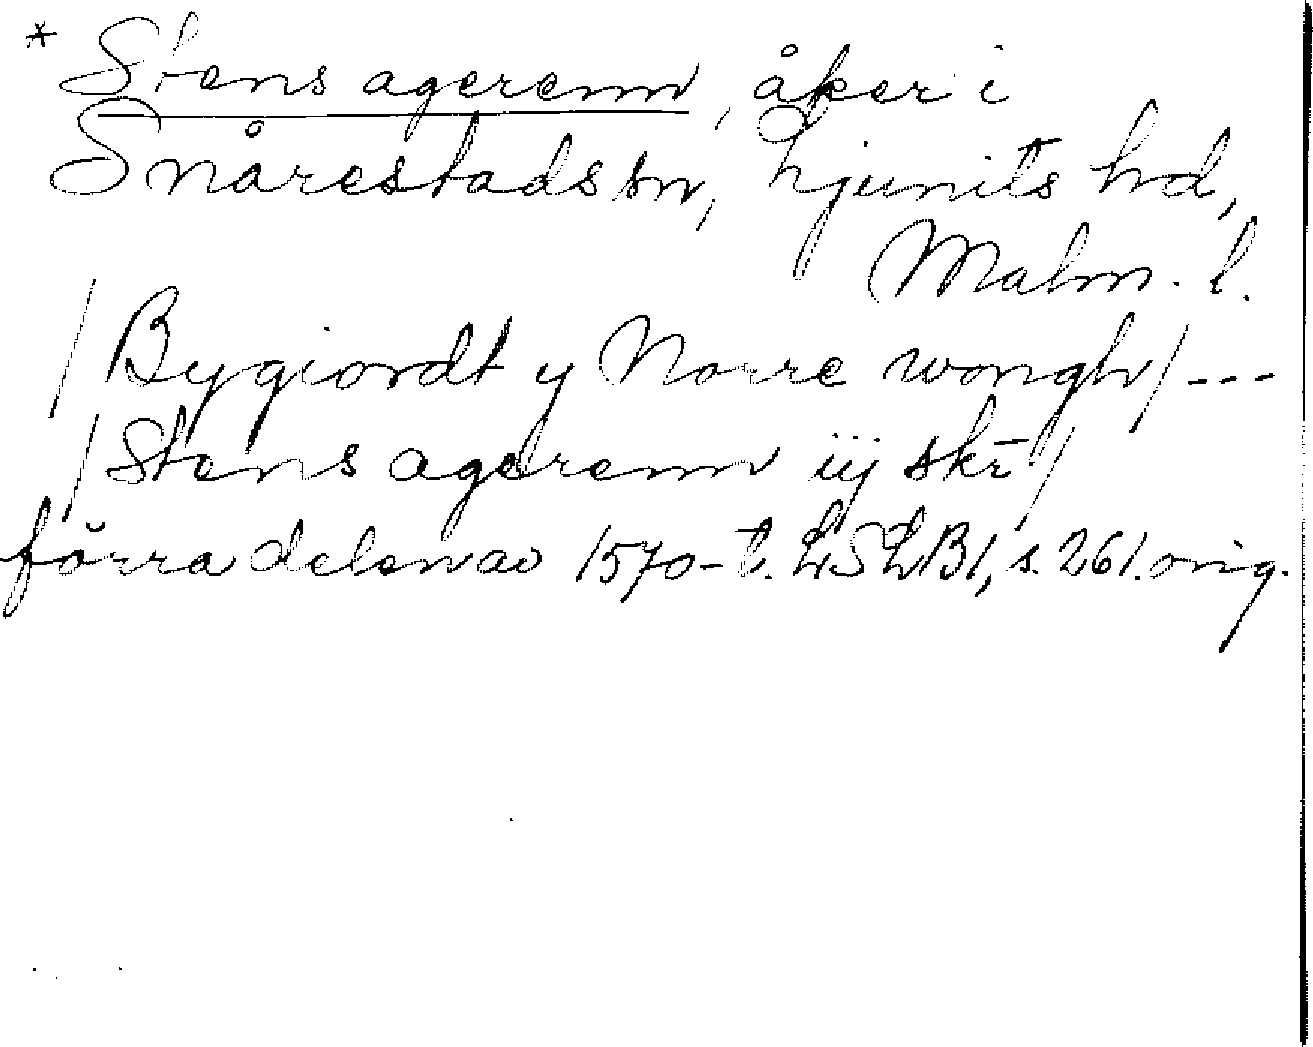 * Stens agerenn, åker i
Snårestads sn, Ljunits hd,
Malm. l.
/Bygiordt y Norre wongh/---
/Stens agerenn iij skr̄/
förra delen av 1570-t. LSLB1, s. 261. orig.